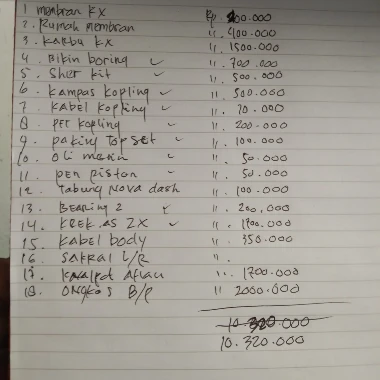 1 membran KX Rp. 200.000
2. Rumah membran ". 400.000
3. Karbu KX ". 1500.000
4. Bikin boring ✓ ". 700.000
5. Sher kit ✓ ". 500.000
6. Kampas kopling ✓ ". 500.000
7. Kabel kopling ✓ ". 70.000
8. per kopling ✓ ". 200.000
9. paking Top set ✓ ". 100.000
10. oli mesin ✓ ". 50.000
11. pen piston ✓ ". 50.000
12. Tabung Nova dash ". 100.000
13. Bearing 2 ✓ ". 200.000
14. KREK AS ZX ✓ ".
15. Kabel body ". 350.000
16. Sakral L/R ".
17. Knalpot ". 1700.000
18. ONgkos B/P " 2000.000
10.320.000
10.320.000